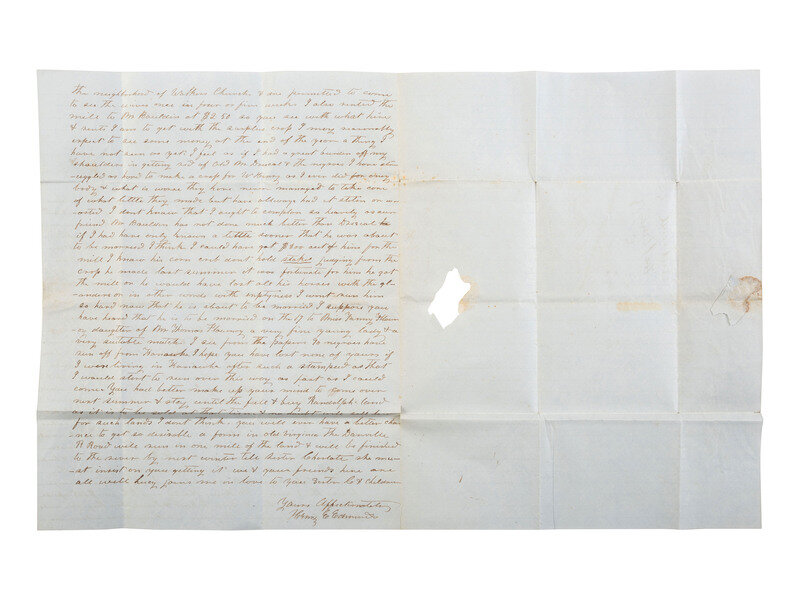 the neighborhood of Walkers Church & are permitted to come
to see the wives once in four or five weeks I also rented the
mill to Mr Bouldin at $250 so you see with what hire
& rents I am to get with the surplus crop I may reasonably
expect to see some money at the end of the year a thing I
have not seen as yet I feel as if I had a great burden off my
shoulders in getting rid of old Mr & the negroes I have str-
uggled as hard to make a crop for as I ever did for any
body & what is worse they have never managed to take care
of what little they made but have allways had it stolen or w-
asted I dont know that I ought to complain so heavily as our
friend Mr Bouldin has not done much better than
if I had have only known a little sooner that he was about
to be married I think I could have got $300 out of him for the
mill I know his corn crib dont hold stakes judging from the
crop he made last summer it was fortunate for him he got
the mill or he would have lost all his horses with the gl-
anders or in other words with emptyness I wont run him
so hard now that he is about to be married I suppose you
have heard that he is to be married on the to Miss Fanny Flourn-
oy daughter of Mr Thomas Flournoy a very fine young lady & a
very suitable match I see from the papers negroes have
run off from Kanawha I hope you have lost none of yours if
I were living in Kanawha after such a stamped as that
I would start to run over this way as fast as I could
come You had better make up your mind to come over
next summer & stay until the fall & buy Randolph land
as it is to be sold at that time &
for such lands I dont think you will ever have a better cha-
nce to get so desirable a farm in old Virginia The Danville
R Road will run in one mile of the land & will be finished
to the river by next winter tell Sister Charlotte she mu-
st insist on you getting it we & your friends here are
all well Lucy joins me in love to you Sister C & children
Yours Affectionately
Henry Edmunds